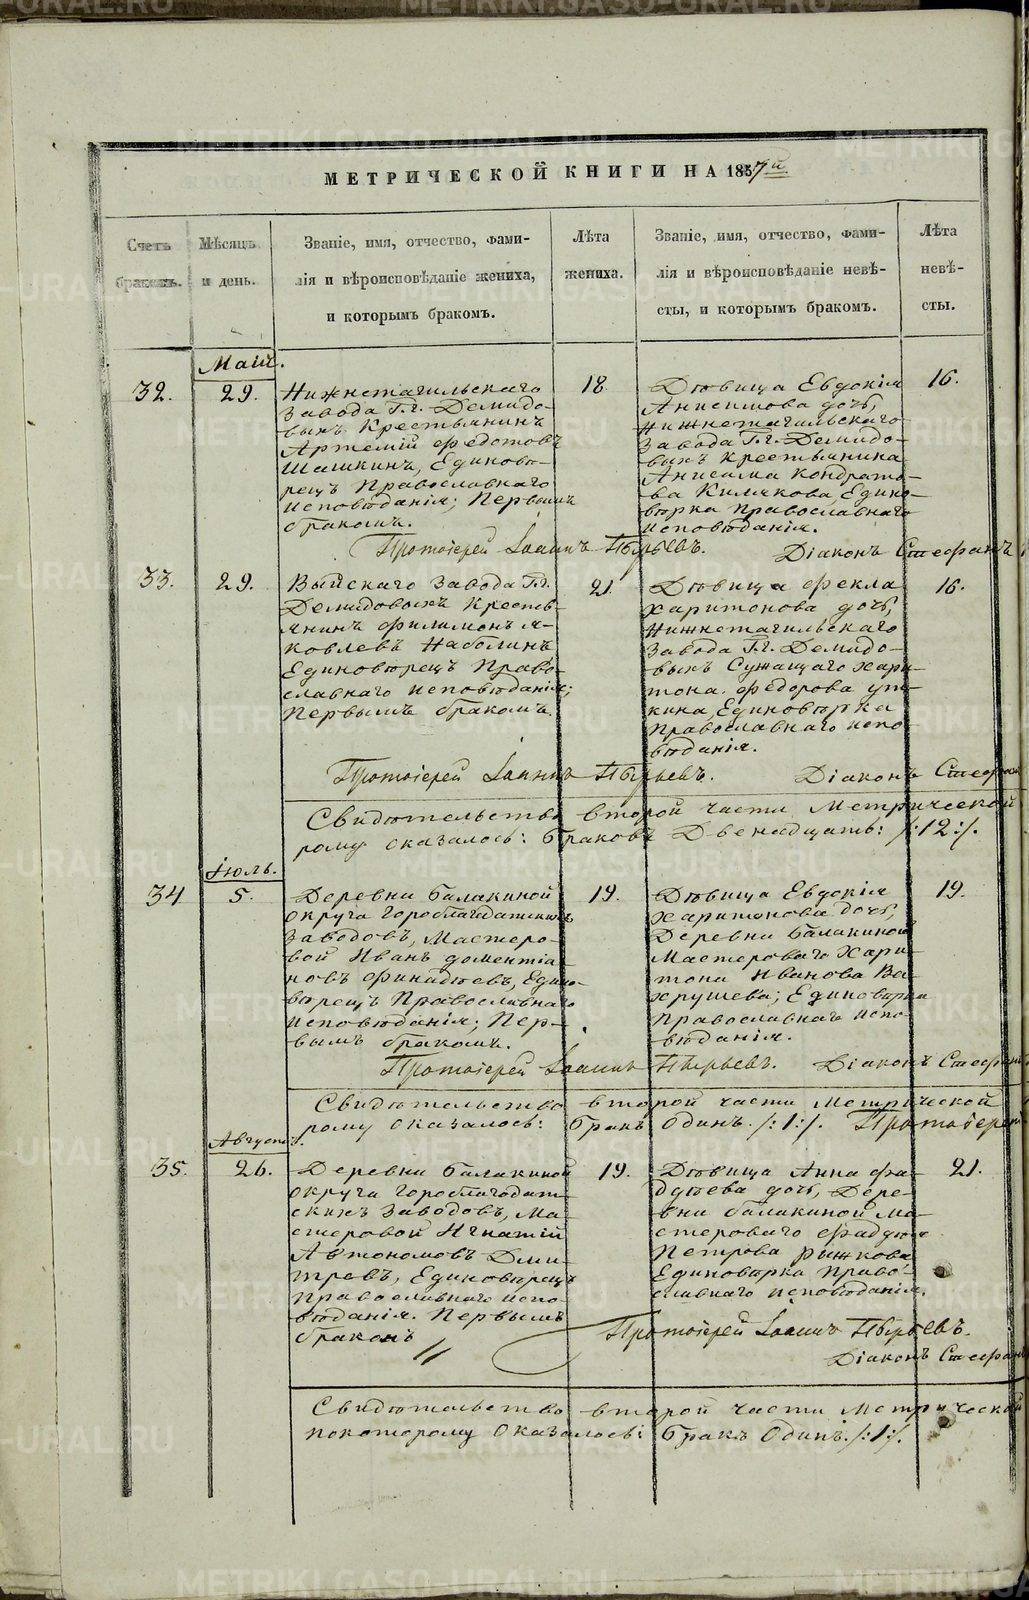 МЕТРИЧЕСКОЙ КНИГИ НА 1857й
Счетъ браковъ.
Мѣсяцъ и день.
Званіе, имя, отчество, фами-
лія и вѣроисповѣданіе жениха,
и которымъ бракомъ.
Лѣта
жениха.
Званіе, имя, отчество, фами-
лія и вѣроисповѣданіе невѣ-
сты, и которымъ бракомъ.
Лѣта
невѣ-
сты.
Маій.
32.
29.
Нижнетагильскаго
Завода Г.г. Демидо-
выхъ Крестьянинъ
Артемій Федотовъ
Шашкинъ, Единовѣ-
рецъ Православнаго
исповѣданія; Первымъ
бракомъ.
18.
Дѣвица Евдокія
Анисимова дочь,
Нижнетагильскаго
Завода Г.г. Демидо-
выхъ крестьянина
Анисима Кондрать-
ва Килчкова, Едино-
вѣрка Православнаго
исповѣданія.
16.
Протоіерей Іоаннъ Пырьевъ. Діаконъ Стефанъ
33.
29.
Выйскаго Завода Г.г.
Демидовыхъ Кресть-
янинъ Филимонъ Я-
ковлевъ Наболинъ
Единовѣрецъ Право-
славнаго исповѣданія;
Первымъ бракомъ.
21.
Дѣвица Фекла
Харитонова дочь,
Нижнетагильскаго
Завода Г.г. Демидо-
выхъ Служащаго Хари-
тона Федорова Ут-
кина, Единовѣрка
Православнаго испо-
вѣданія.
16.
Протоіерей Іоаннъ Пырьевъ. Діаконъ Стефанъ
Свидѣтельство второй части Метрической
рому оказалось: браковъ Двенадцать: /:12:/.
Іюль.
34
5.
Деревни Балакиной
округа Гороблагодатскихъ
Заводовъ, Мастеро-
вой Иванъ Доментіа-
новъ Финадѣевъ, Едино-
вѣрецъ Православнаго
исповѣданія; Пер-
вымъ бракомъ.
19.
Дѣвица Евдокія
Харитонова дочь,
Деревни Балакиной
Мастероваго Хари
тона Иванова Ва-
хрушева; Единовѣрка
Православнаго испо-
вѣданія.
19.
Протоіерей Іоаннъ Пырьевъ. Діаконъ Стефанъ
Свидѣтельство второй части Метрической
рому оказалось: бракъ Одинъ. /:1:/. Протоіерей
Августъ.
35.
26.
Деревни Балакиной
округа Гороблагодат-
скихъ Заводовъ, Ма-
стеровой Игнатій
Автономовъ Дми-
тревъ, Единовѣрецъ
Православнаго испо-
вѣданія. Первымъ
бракомъ
19.
Дѣвица Анна Фа-
дѣева дочь, Дере-
вни Балакиной Ма-
стероваго Фадѣя
Петрова Рыжкова
Единовѣрка Право-
славнаго исповѣданія.
21.
Протоіерей Іоаннъ Пырьевъ.
Діаконъ Стефанъ
Свидѣтельство второй части Метрической
покоторому оказалось: бракъ Одинъ. /:1:/.